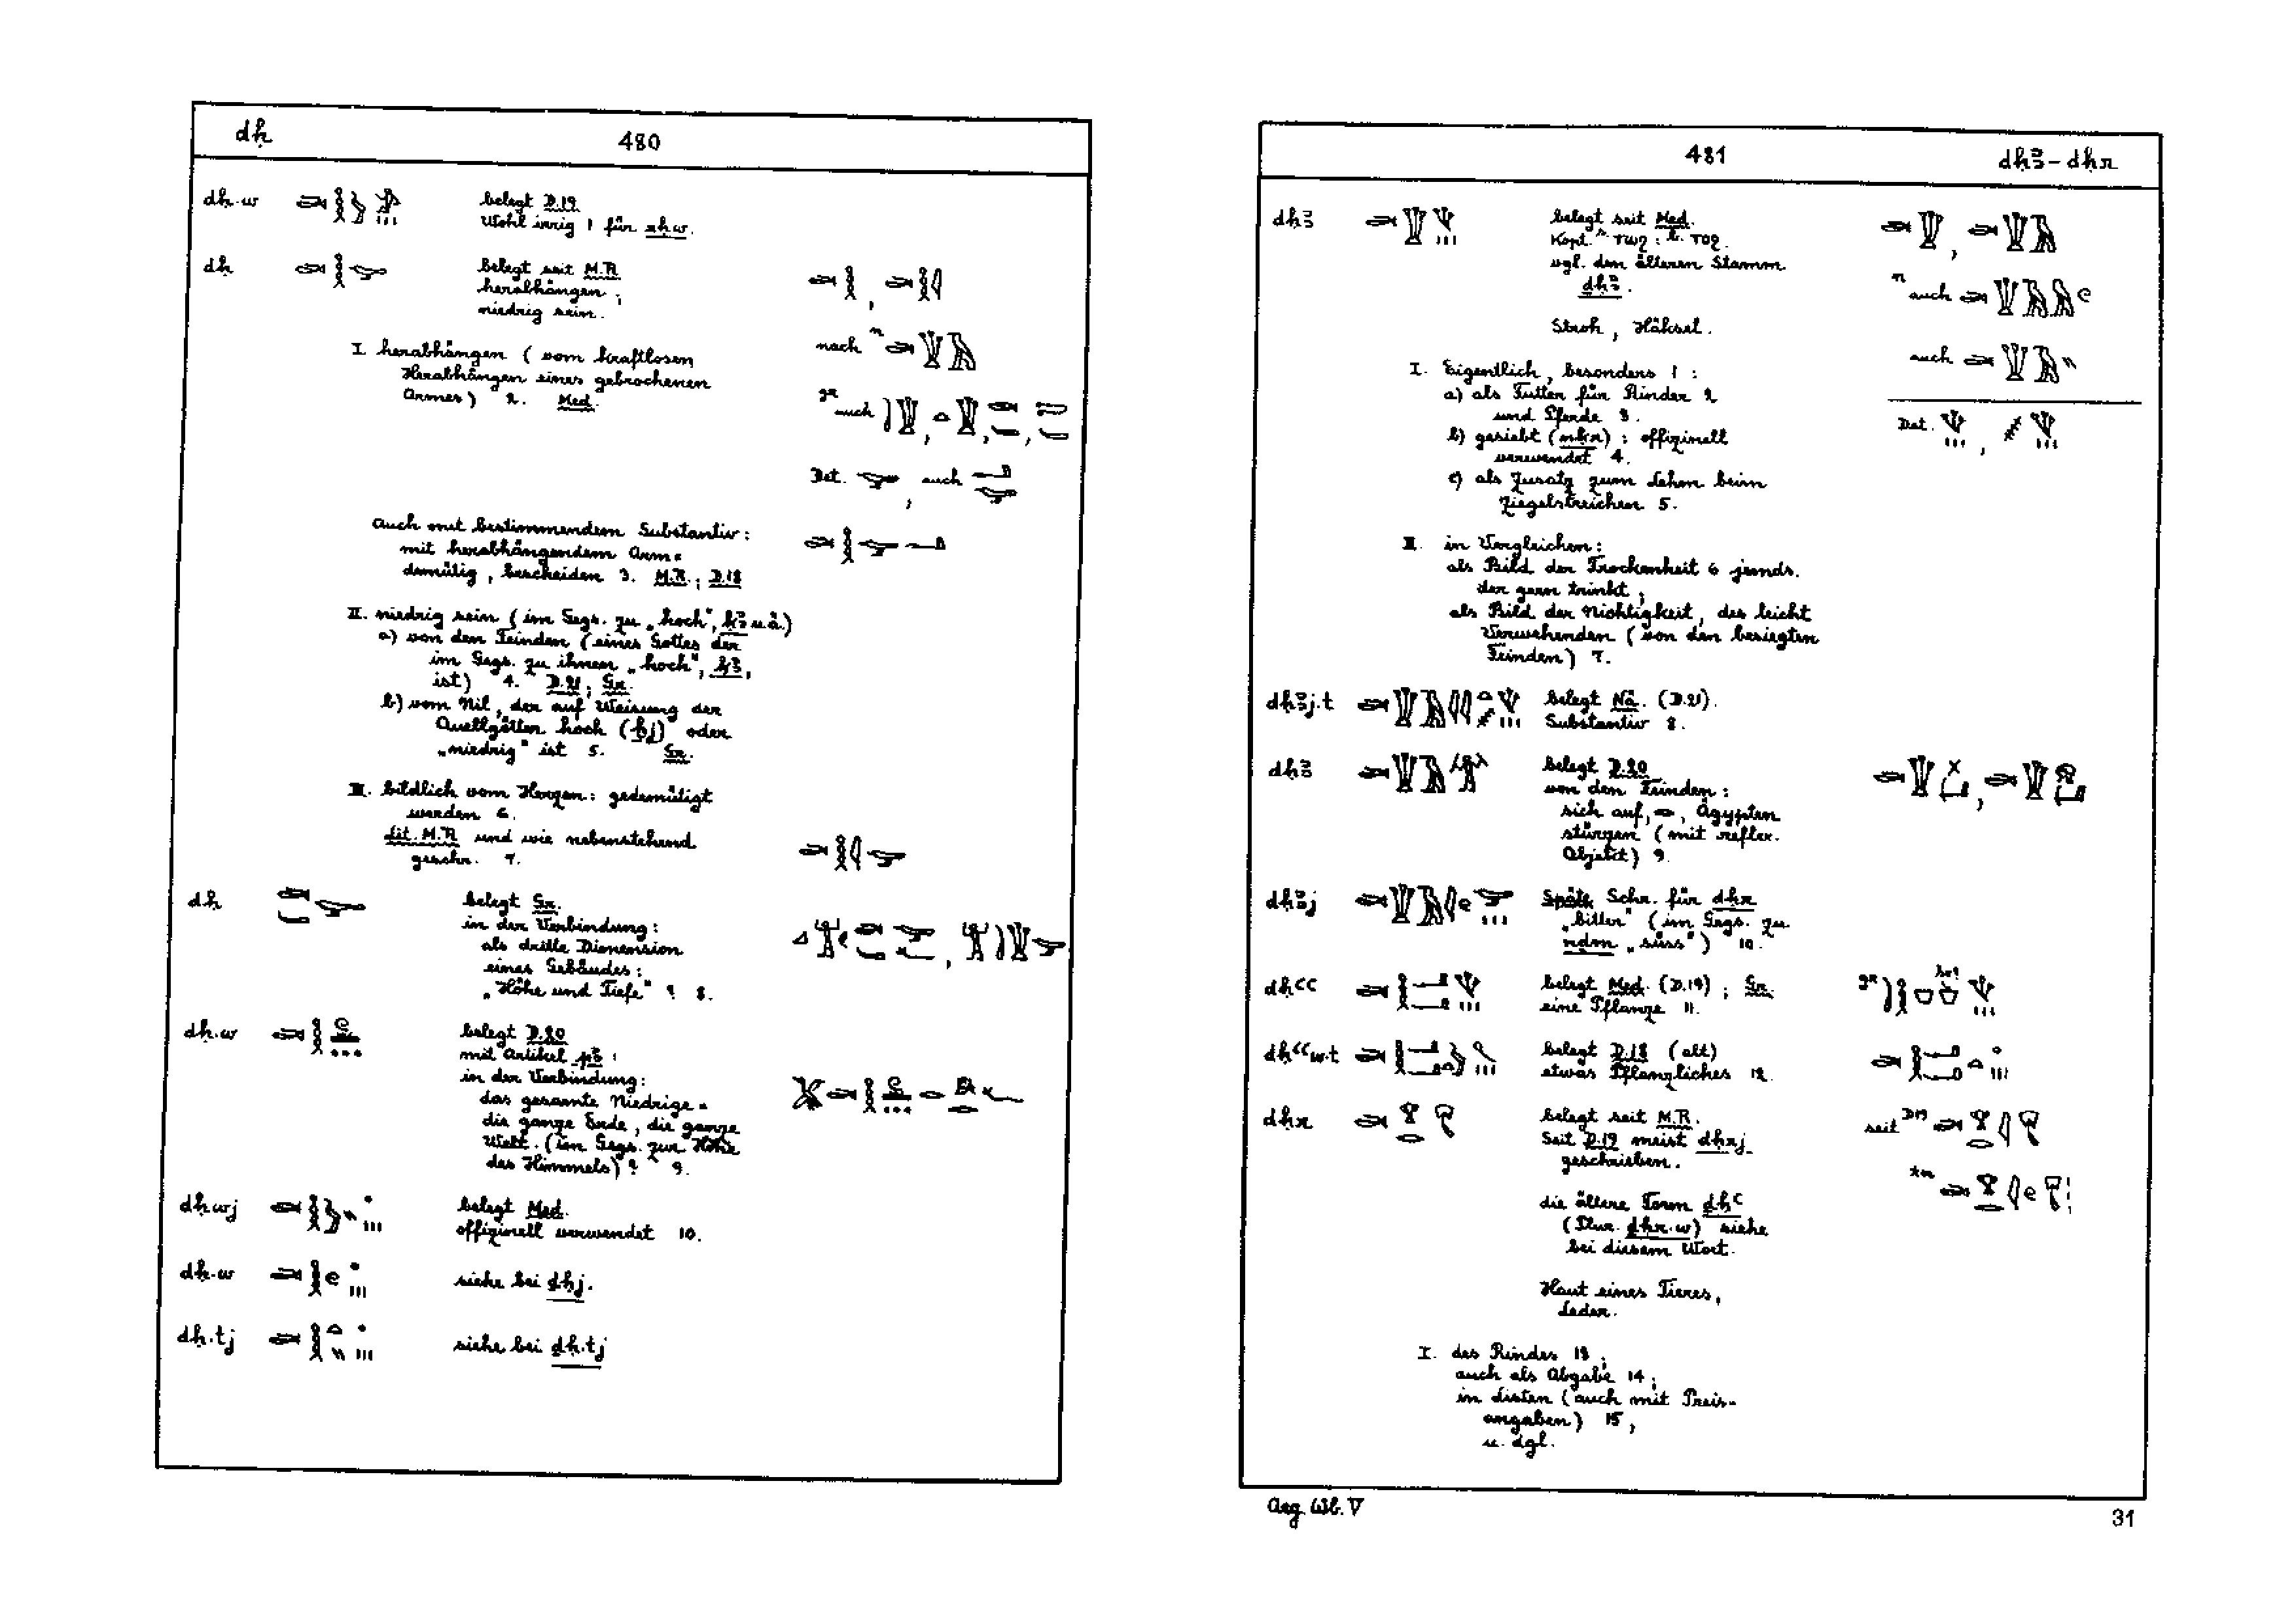 dḥ 480
dḥ.w belegt D.19
Wohl irrig 1 für
dḥ belegt seit M.R
herabhängen;
niedrig sein.
nach n
I. herabhängen (vom kraftlosen
Herabhängen eines gebrochenen
Armes) 2. Med.
gr auch
Det. , auch
Auch mit bestimmendem Substantiv:
mit herabhängendem Arm =
demütig, bescheiden 3. M.R.; D.18
II. niedrig sein (im Gegs. zu „hoch", ḳꜣ u.ä.)
a) von den Feinden (eines Gottes der
im Gegs. zu ihnen „hoch", ḳꜣ,
ist) 4. D.21; Gr.
b) vom Nil, der auf Weisung der
Quellgötter hoch (ḳj) oder
„niedrig" ist 5. Gr.
III. bildlich vom Herzen: gedemütigt
werden 6.
Lit. M.R und wie nebenstehend
geschr. 7.
dḥ belegt Gr.
in der Verbindung:
als dritte Dimension
eines Gebäudes:
„Höhe und Tiefe" ? 8.
dḥ.w belegt D.20
mit Artikel pꜣ:
in der Verbindung:
das gesamte Niedrige =
die ganze Erde, die ganze
Welt. (im Gegs. zur Höhe
des Himmels)? 9.
dḥwj belegt Med.
offizinell verwendet 10.
dḥ.w siehe bei ḏḥj.
dḥ.tj siehe bei ḏḥ.tj
481 dḥꜣ - dḥr
dḥꜣ belegt seit Med.
Kopt. s. ⲧⲱϩ : b. ⲧⲟϩ.
vgl. den älteren Stamm
ḏḥꜣ.
n auch
Stroh, Häksel.
auch
I. Eigentlich, besonders 1:
a) als Futter für Rinder 2
und Pferde 3.
Det. ,
b) gesiebt (nḳr): offizinell
verwendet 4.
c) als Zusatz zum Lehm beim
Ziegelstreichen 5.
II. in Vergleichen:
als Bild der Trockenheit 6 jemds.
der gern trinkt;
als Bild der Nichtigkeit, des leicht
Verwehenden (von den besiegten
Feinden) 7.
dḥꜣj.t belegt Nä. (D.21).
Substantiv 8.
dḥꜣ belegt D.20
von den Feinden:
sich auf, , Ägypten
stürzen (mit reflex.
Objekt) 9.
dḥꜣj Späte Schr. für dḥr
„bitter" (im Gegs. zu
nḏm „süss") 10.
dḥꜥꜥ belegt Med. (D.19); Gr.
eine Pflanze 11.
gr
dḥꜥꜥw.t belegt D.18 (alt)
etwas Pflanzliches 12.
dḥr belegt seit M.R.
Seit D.19 meist dḥrj
geschrieben.
seit D19
die ältere Form ḏḥꜥ
(Plur. ḏḥr.w) siehe
bei diesem Wort.
Haut eines Tieres,
Leder.
I. des Rindes 13;
auch als Abgabe 14;
in Listen (auch mit Preis-
angaben) 15,
u. dgl.
Aeg Wb. V 31